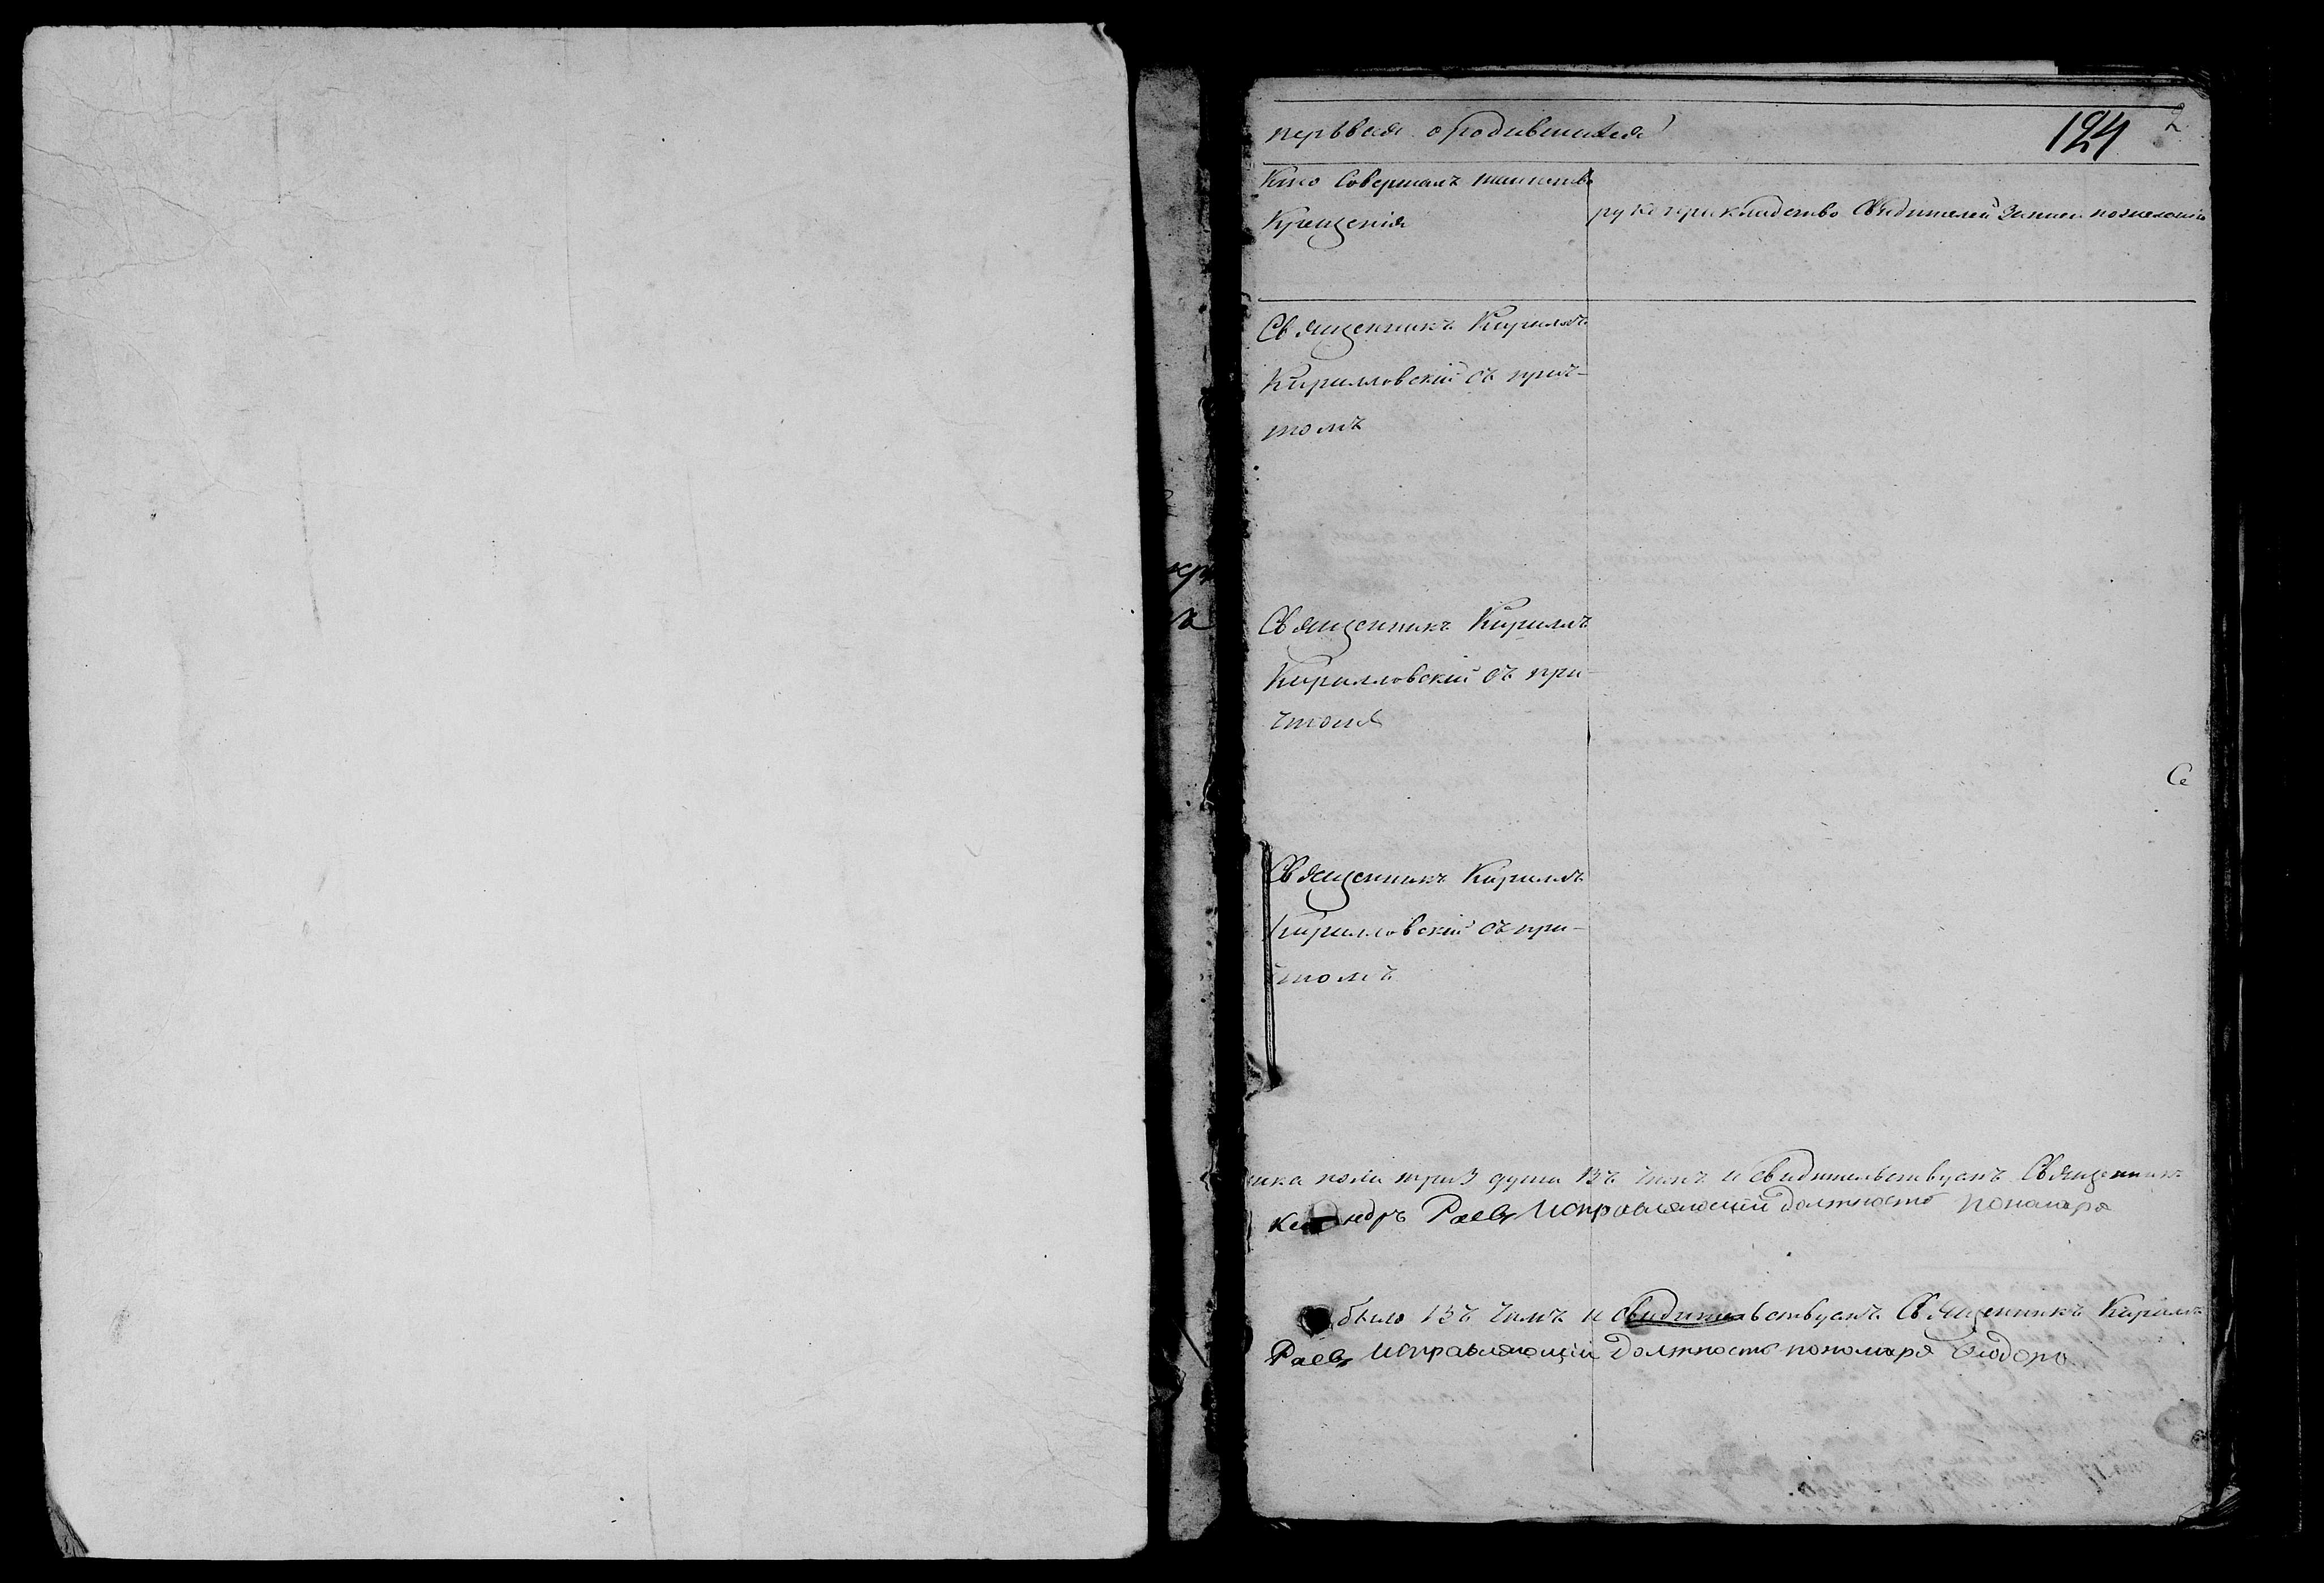 перьвая о родившихся
194 2
Кто Совершалъ таинство
Крещенія
рукоприкладство Свидетелей Записи по желанію
Священникъ Кириллъ
Кирилловскій съ прич-
томъ
Священникъ Кириллъ
Кирилловскій съ при-
чтомъ
Се
Священникъ Кириллъ
Кирилловскій съ при-
чтомъ
ска пола три 3 души въ томъ и свидетельствуютъ Священникъ
Раевъ Исправляющій должность пономаря
было въ томъ и свидетельствуютъ Священникъ Кириллъ
Раевъ Исправляющій Должность пономаря Ѳюдоръ